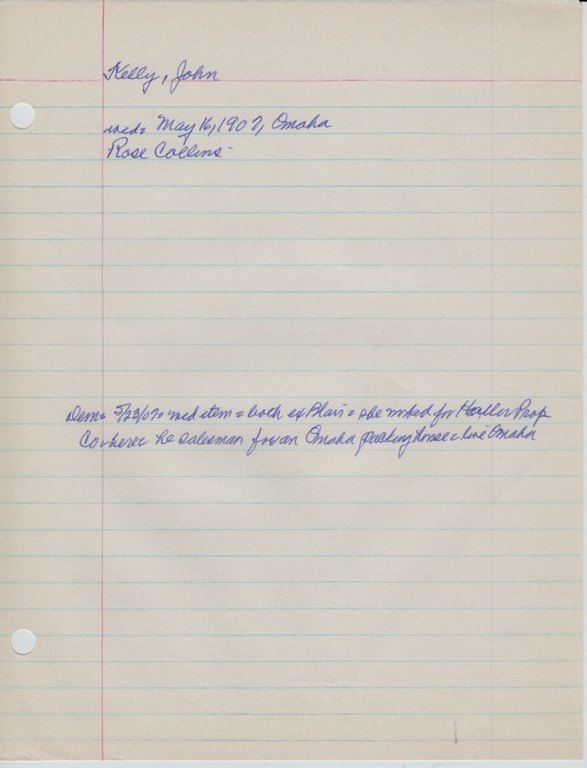 Kelly, John
wed= May 16, 1907, Omaha
Rose Collins-
Dem= 5/23/07= wed item = both ex Blair = she worked for Haller Prop
Co here= he salesman for an Omaha packing house = live Omaha